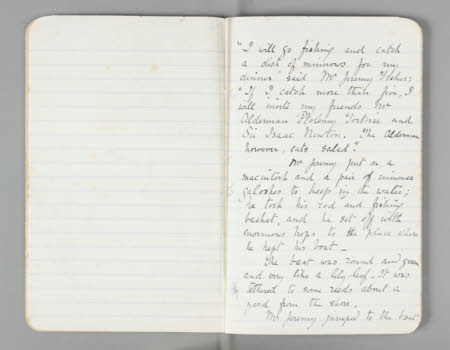 "I will go fishing and catch
a dish of minnows for my
dinner", said Mr Jeremy Fisher;
"If I catch more than five, I
will invite my friends Mr
Alderman Ptolemy Tortoise and
Sir Isaac Newton. The Alderman
however, eats salad".
Mr Jeremy put on a
macintosh and a pair of
galoshes to keep in the water;
he took his rod and fishing
basket, and he set off with
enormous hops to the place where
he kept his boat –
The boat was round and green
and very like a lily-leaf – It was
tethered to some reeds about a
yard from the shore.
Mr Jeremy jumped to the boat